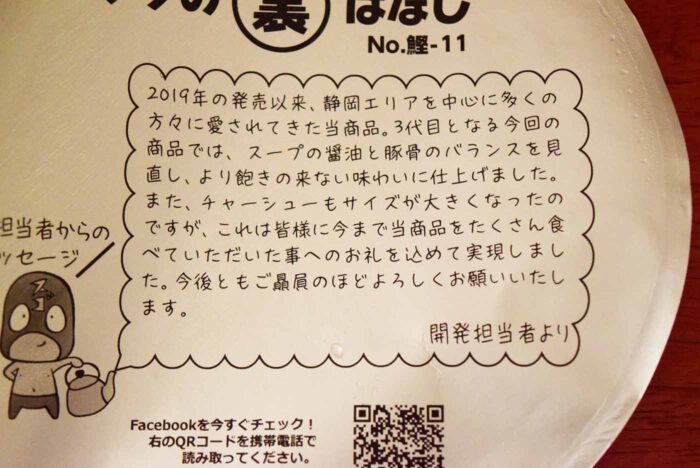 の裏ばなし
No.鰹-11
2019年の発売以来、静岡エリアを中心に多くの
方々に愛されてきた当商品。3代目となる今回の
商品では、スープの醤油と豚骨のバランスを見
直し、より飽きの来ない味わいに仕上げました。
また、チャーシューもサイズが大きくなったの
ですが、これは皆様に今まで当商品をたくさん食
べていただいた事へのお礼を込めて実現しまし
た。今後ともご贔屓のほどよろしくお願いいたし
ます。
開発担当者より
担当者からの
ッセージ
Facebookを今すぐチェック!
右のQRコードを携帯電話で
読み取ってください。